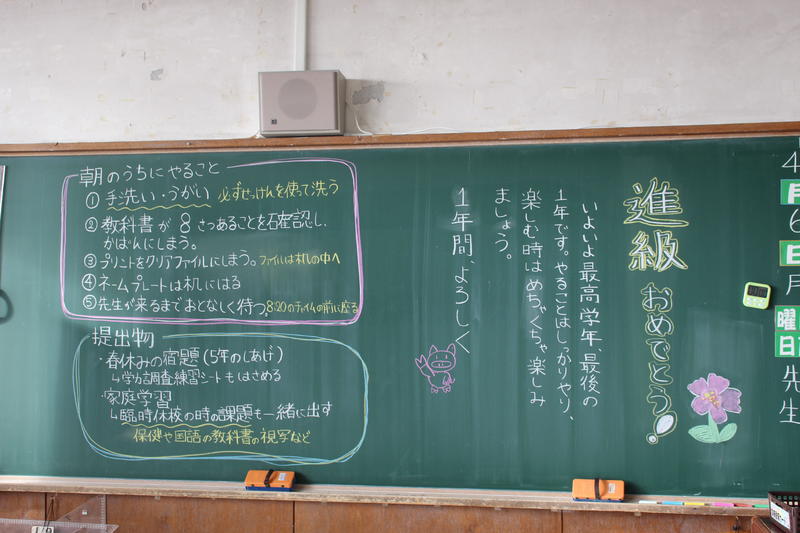 4
月
6
日
月
曜
日
先
生
進級
おめでとう!
いよいよ最高学年、最後の
1年です。やることはしっかりやり、
楽しむ時はめちゃくちゃ楽しみ
ましょう。
1年間、よろしく
朝のうちにやること
① 手洗い・うがい 必ずせっけんを使って洗う
② 教科書が8さつあることを確認し、
かばんにしまう。
③ プリントをクリアファイルにしまう。ファイルは机の中へ
④ ネームプレートは机にはる
⑤ 先生が来るまでおとなしく待つ 8:20のチャイムの前に座る
提出物
・春休みの宿題(5年のしあげ)
↳学力調査練習シートもはさめる
・家庭学習
↳臨時休校の時の課題も一緒に出す
保健や国語の教科書の視写など